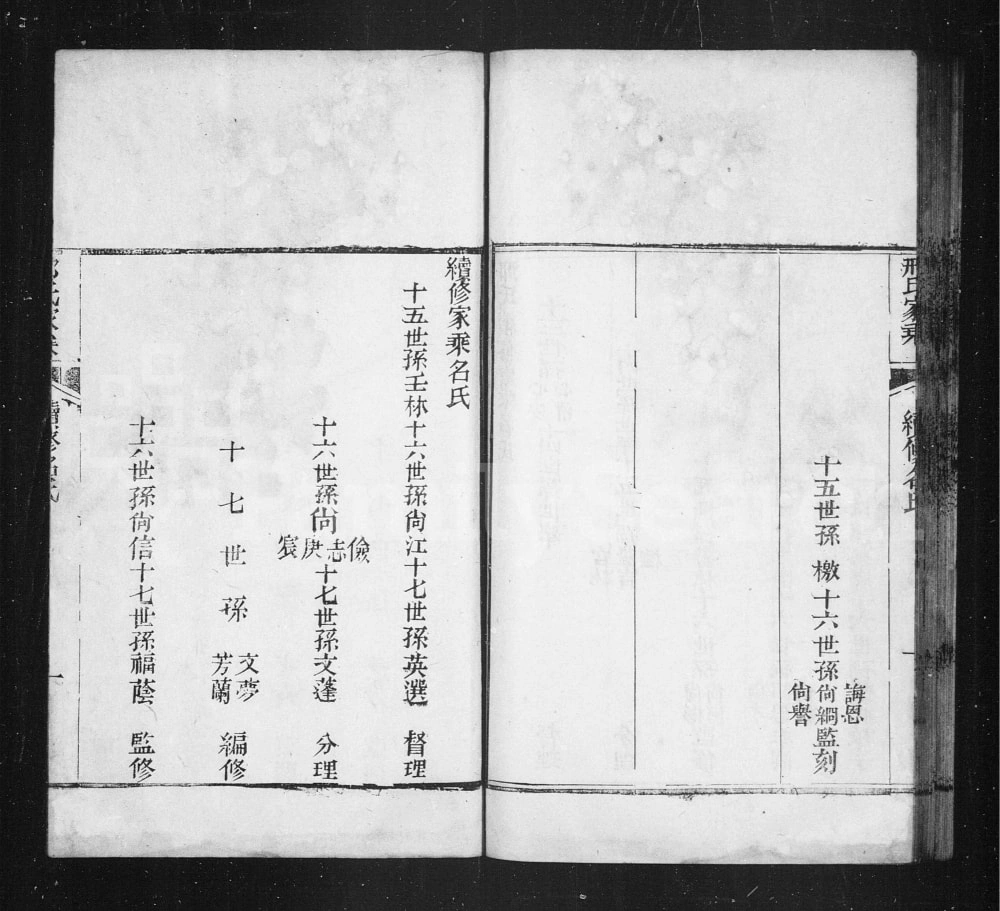 邢氏家乘 續修名氏 一
十五世孫 檄十六世孫
誨恩
尚綱
尚譽
監刻
續修家乘名氏
十五世孫壬林十六世孫尚江十七世孫英選 督理
十六世孫尚
儉
志
庚
宸
十七世孫文蓬 分理
十七世孫
文夢
芳蘭
編修
十六世孫尚信十七世孫福蔭 監修
邢氏家乘 續修名氏 一